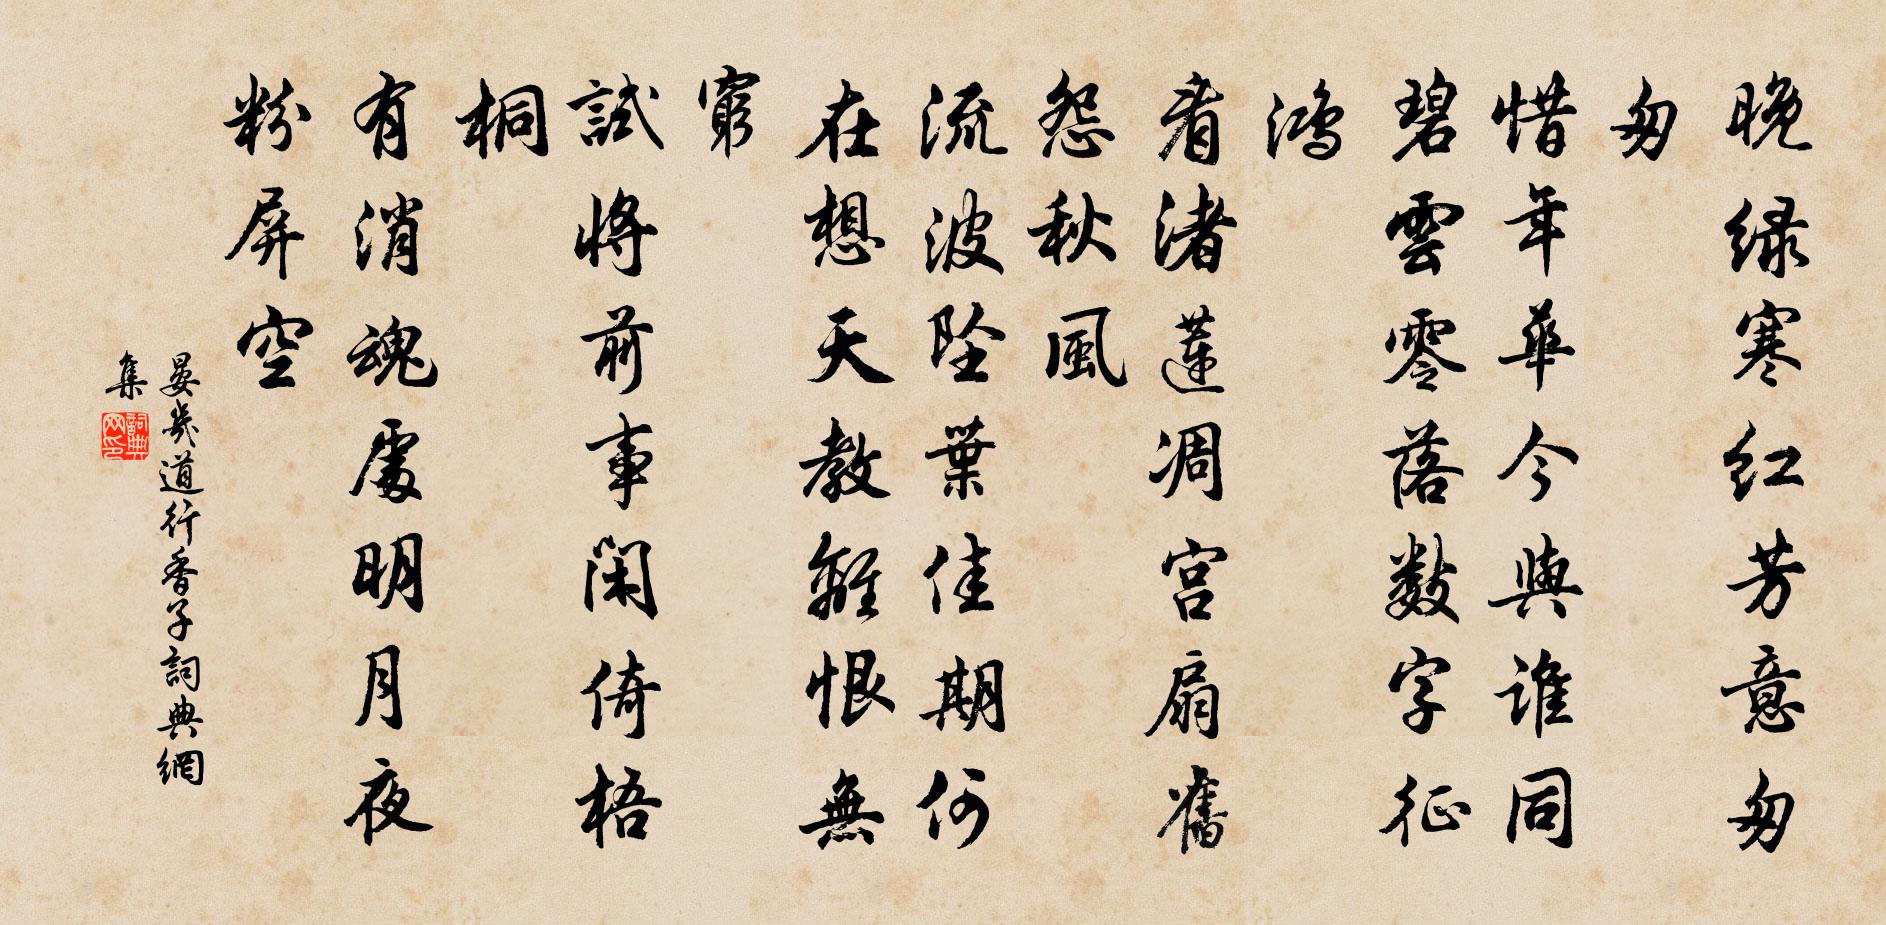 晚绿寒红芳意匆
匆
惜年華今與谁同
碧雲零落数字征
鸿
看渚蓮凋宫扇舊
怨秋風
流波坠葉佳期何
在想天教離恨無
窮
試將前事闲倚梧
桐
有消魂處明月夜
粉屏空
晏幾道行香子詞典網
集
詞典
网印